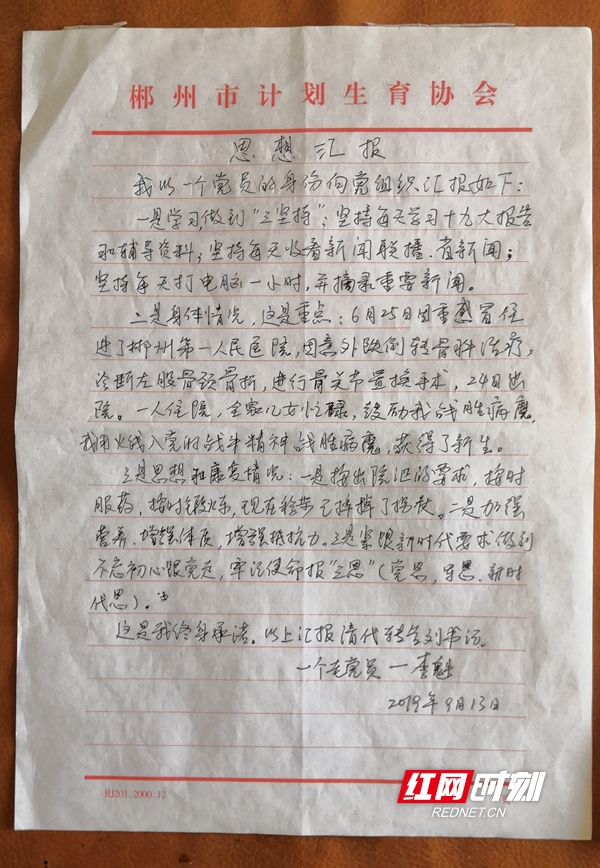 郴州市计划生育协会
思想汇报
我以一个党员的身份向党组织汇报如下：
一是学习，做到"三坚持"：坚持每天学习十九大报告
和辅导资料；坚持每天收看新闻联播、省新闻；
坚持每天打电脑一小时，并摘录重要新闻。
二是身体情况，这是重点：6月25日因重感冒住
进了郴州第一人民医院，因意外跌倒转骨科治疗，
诊断左股骨颈骨折，进行骨关节置换手术，24日出
院。一人住院，全家儿女忙碌，鼓励我战胜病魔，
我用火线入党的战斗精神战胜病魔，获得了新生。
三是思想和康复情况：一是按出院记的要求，按时
服药，按时锻炼，现在拴架已摔掉了拐杖。二是加强
营养，增强体质，增强抵抗力。三是紧跟新时代要求做到
不忘初心跟党走，牢记使命报"三恩"（党恩，军恩，新时
代恩）。
这是我终身承诺。以上汇报请代转告刘书记。
一个老党员一李魁
2019年9月13日
RJ201.2000.12
红网时刻
REDNET.CN